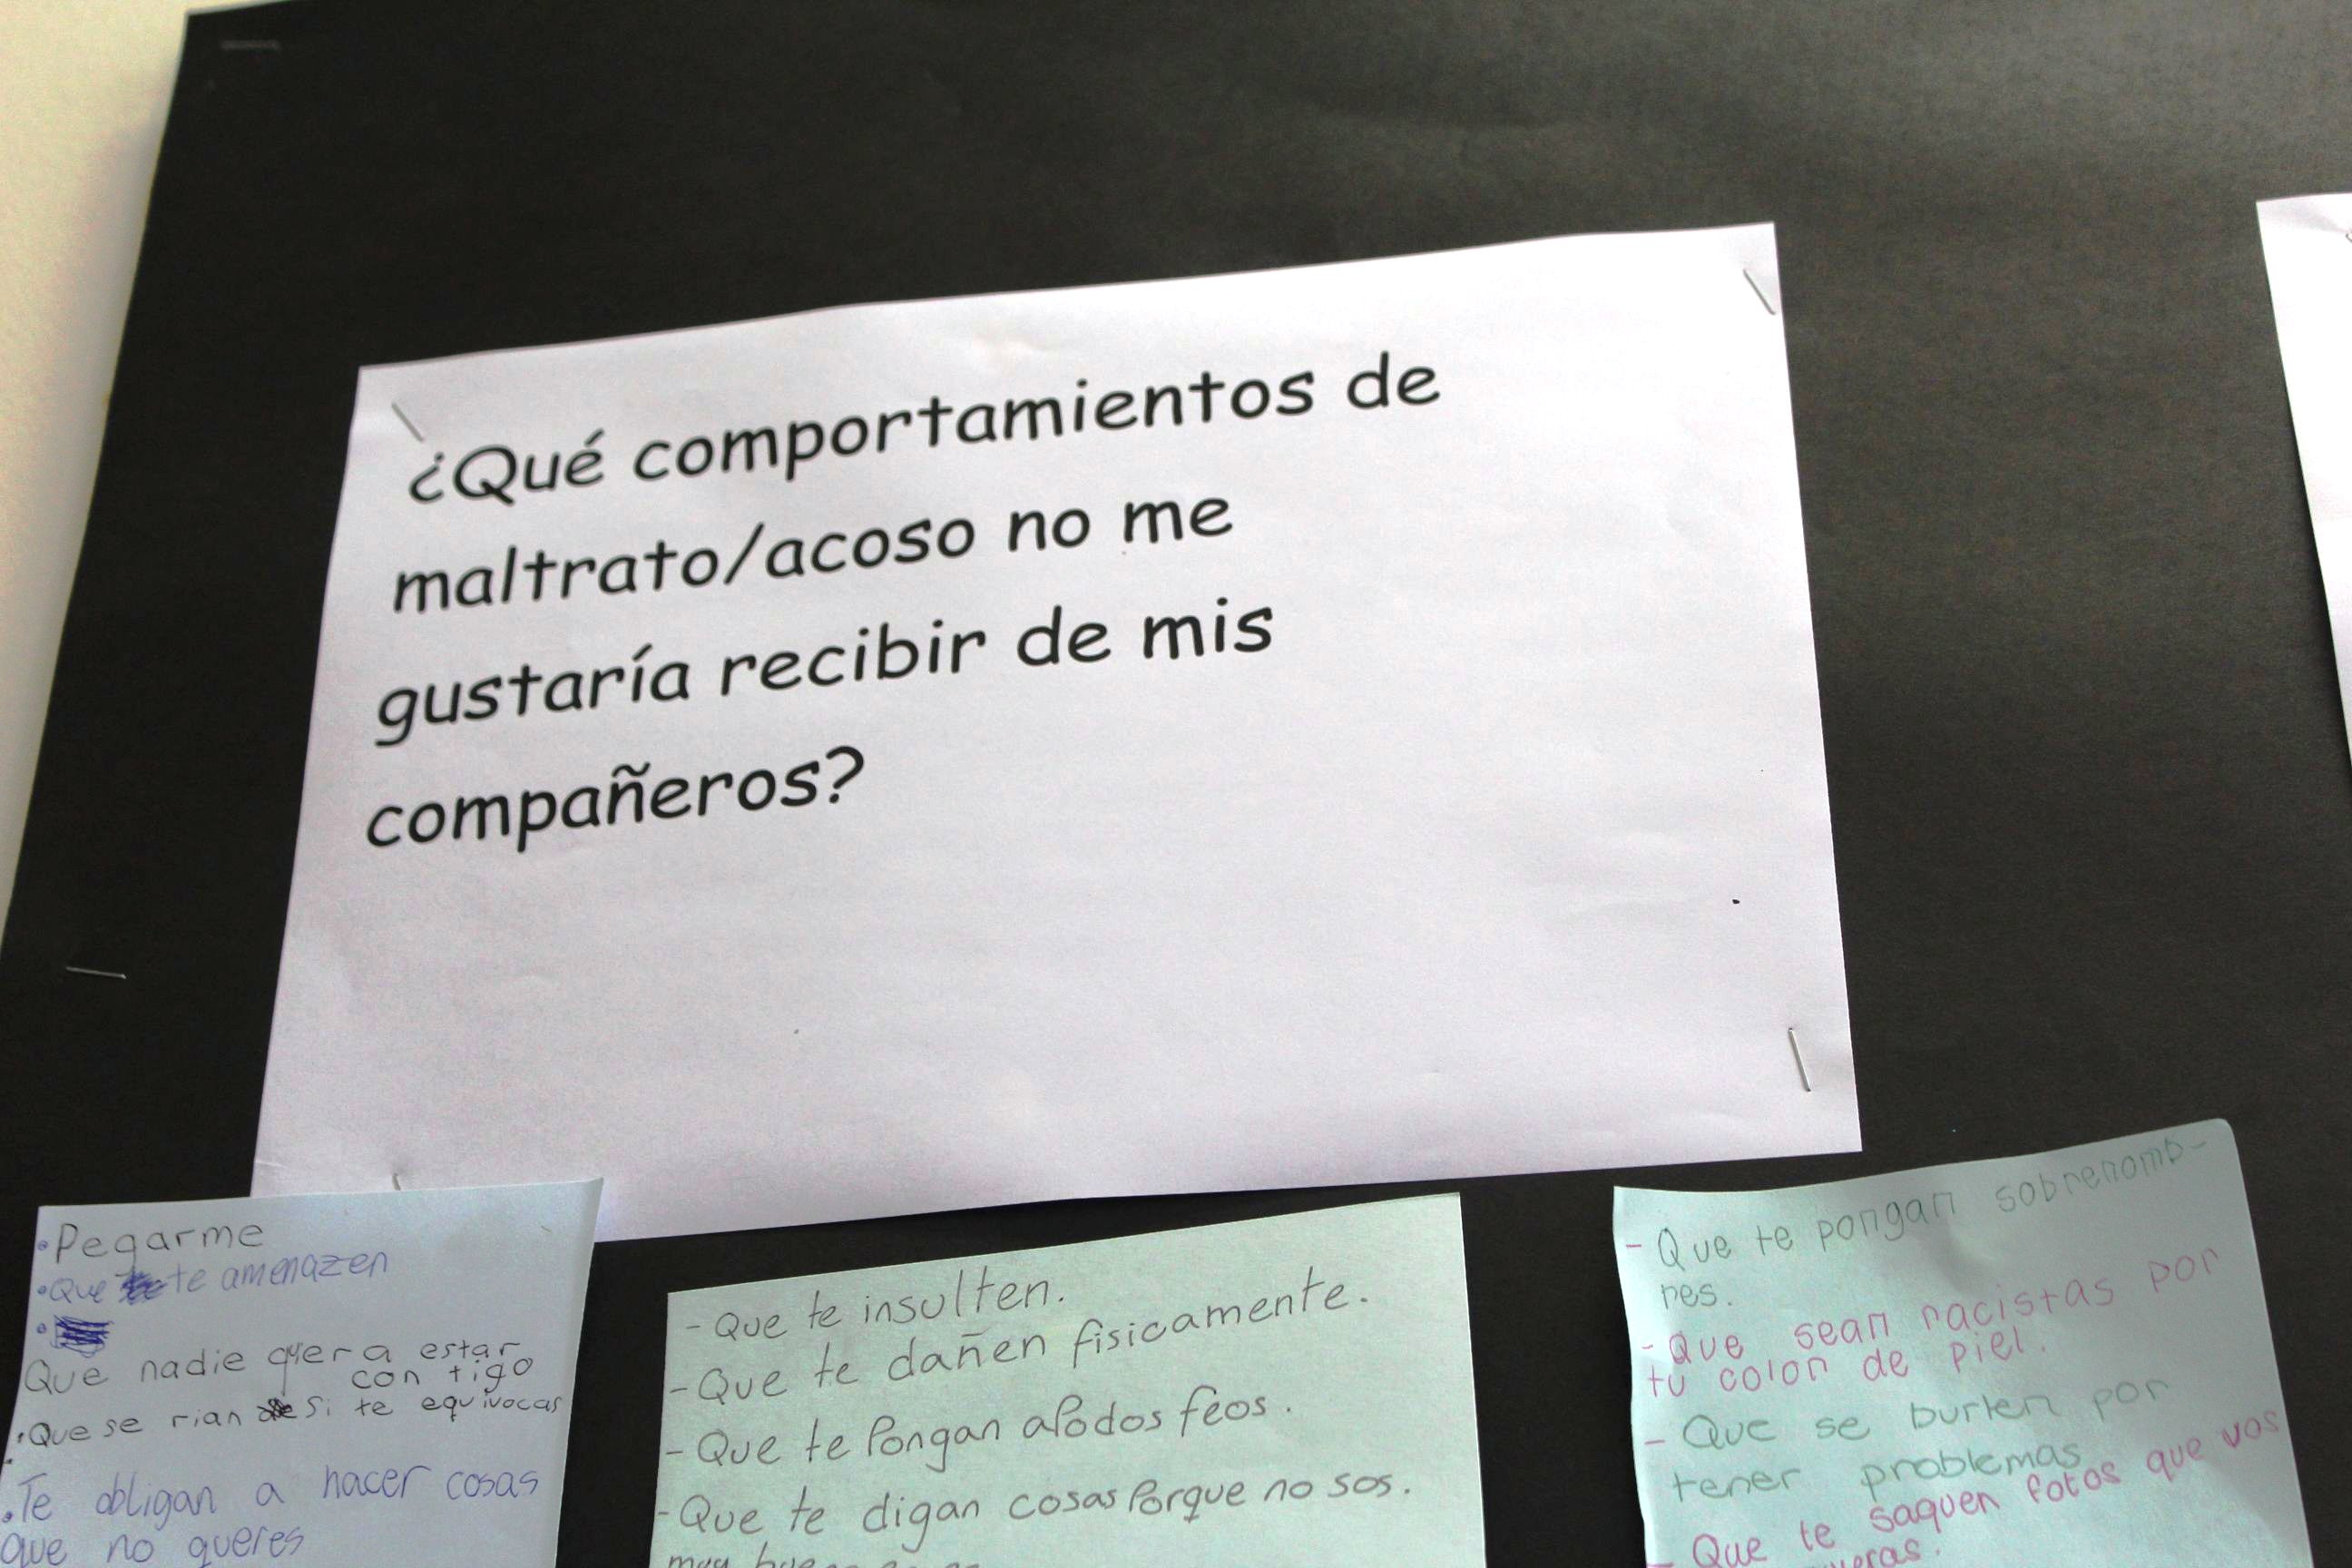 ¿Qué comportamientos de
maltrato/acoso no me
gustaría recibir de mis
compañeros?
•Pegarme
•Que te amenazen
•
Que nadie qiera estar
con tigo
•Que se rian si te equivocas
•Te obligan a hacer cosas
que no queres
- Que te insulten.
- Que te dañen fisicamente.
- Que te Pongan aPodos feos.
- Que te digan cosas Porque no sos.
muy
- Que te pongan sobrenomb-
res.
- Que sean racistas por
tu color de piel.
- Que se burlen por
tener problemas
- Que te saquen fotos que vos